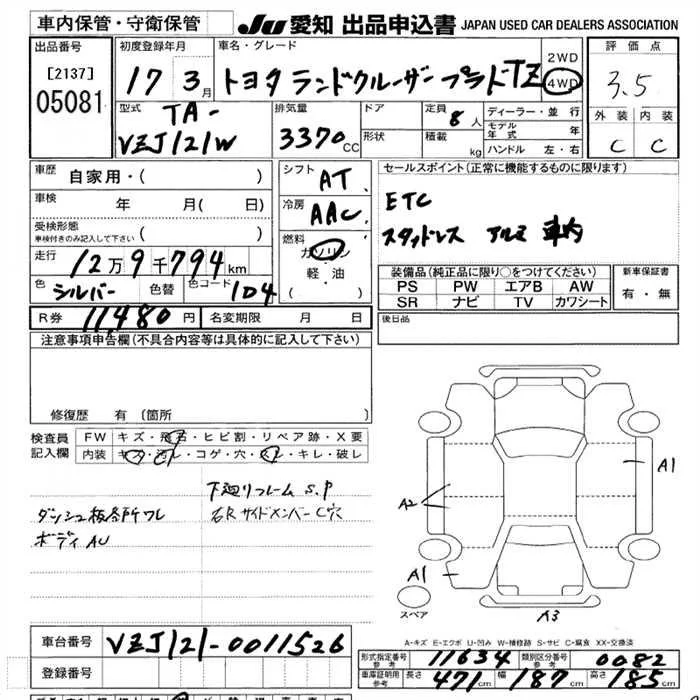 車内保管・守衛保管
JU 愛知 出品申込書 JAPAN USED CAR DEALERS ASSOCIATION
出品番号
[2137]
05081
初度登録年月
17 3月
車名・グレード
トヨタ ランドクルーザー プラド TZ
2WD
4WD
評価点
3.5
外装 内装
C C
型式
TA-
VZJ121W
排気量
3370cc
ドア
形状
定員 8人
積載 kg
ディーラー・並行
モデル年式 年
ハンドル 左・右
車歴 自家用・( )
車検 年 月( 日)
受検形態
車検付きのみ記入して下さい ( )
走行 12万9千794km
色 シルバー 色替 色コード 1D4
シフト AT
冷房 AAC
燃料 ガソリン
軽・油
( )
セールスポイント(正常に機能するものに限ります)
ETC
スタッドレス アルミ 車内
装備品(純正品に限り○をつけてください)
PS PW エアB AW
SR ナビ TV カワシート
新車保証書
有・無
R券 11,480円 名変期限 月 日
後日品
注意事項申告欄(不具合内容等は具体的に記入して下さい)
修復歴 有 (箇所 )
検査員記入欄
FW キズ・飛石・ヒビ割・リペア跡・X要
内装 キズ・汚レ・コゲ・穴・スレ・キレ・破レ
下廻リフレーム S.P
ダッシュ板各所ワレ 右RサイドメンバーC穴
ボディAU
A1
A2
A1
A3
スペア
A-キズ E-エクボ U-凹み W-補修跡 S-サビ C-腐食 XX-交換済
車台番号 VZJ121-0011526
登録番号
形式指定番号 参考 11634 類別区分番号 参考 0082
車庫証明用 参考 長さ 471cm 幅 187cm 高さ 185cm